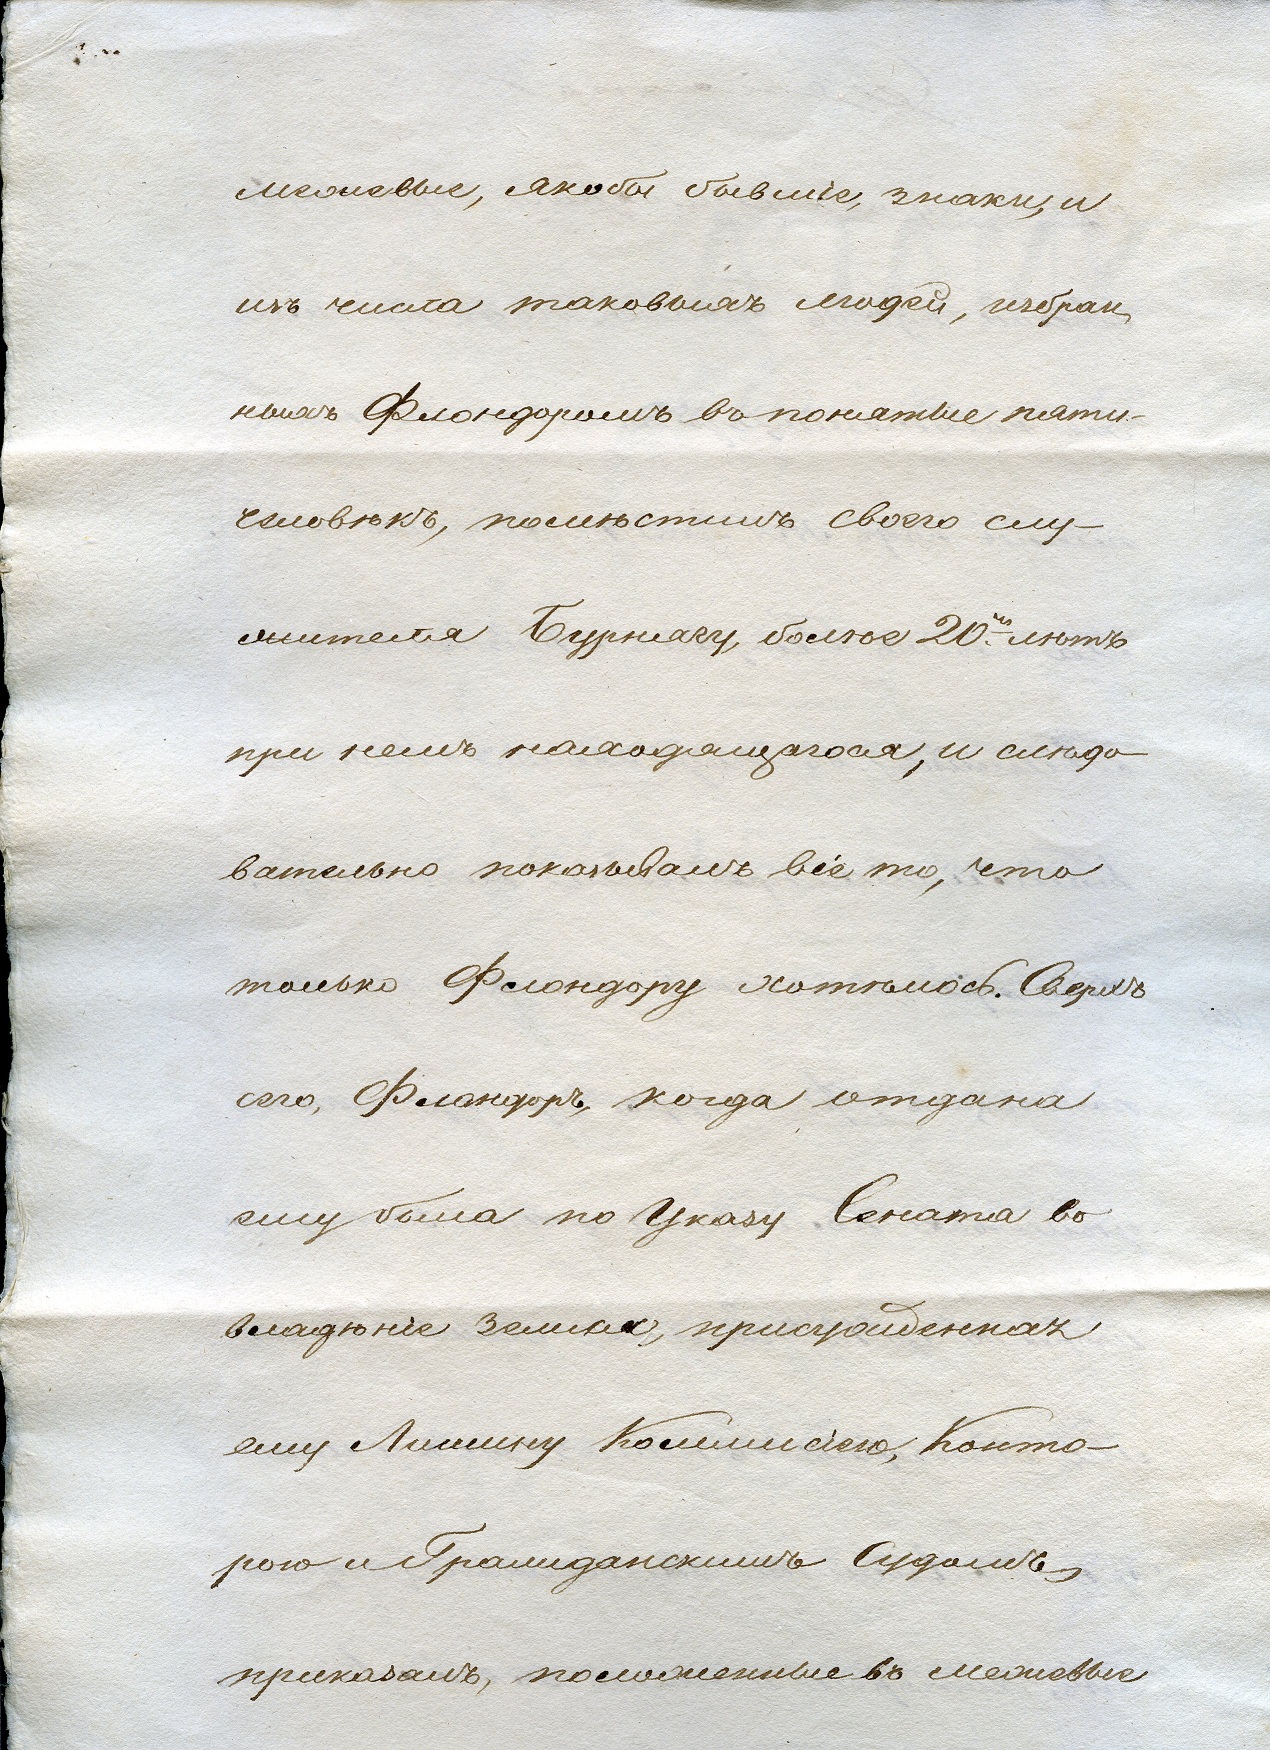 межевые, якобы бывшіе, знаки, и
изъ числа таковыхъ людей, избран
ныхъ Флондоромъ въ понятые пяти
человѣкъ, помѣстилъ своего слу-
жителя Бурнагу, болѣе 20ти лѣтъ
при немъ находящагося, и слѣдо-
вательно показывалъ все то, что
только Флондору хотѣлось. Сверхъ
сего, Флондоръ, когда отдана
ему была по Указу Сената во
владѣніе земля, присужденная
ему Лишину Коммисіею, Конто-
рою и Гражданскимъ Судомъ,
приказалъ, положенные въ межевые